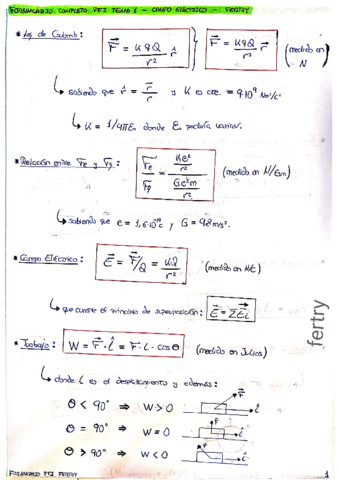 FORMULARIO COMPLETO PFI TEMA 1 - CAMPO ELÉCTRICO - FERTRY
* Ley de Coulomb: F = K q Q / r² r̂ } F = K q Q / r³ r (medido en N)
↳ sabiendo que r̂ = r / r y K es cte. = 9·10⁹ Nm²/C²
↳ K = 1/4πε₀ donde ε₀ podría variar.
* Relación entre Fe y Fg: Fe / Fg = Ke² / r² / Ge²m / r² (medido en N/Gm)
↳ sabiendo que e = 1,6·10⁻¹⁹C y G = 9,8 m/s².
* Campo Eléctrico: E = F/Q = KQ / r² (medido en N/C)
↳ que cumple el principio de superposición: E = ΣEi
* Trabajo: W = F · l = F · l · cos θ (medido en Julios)
↳ donde l es el desplazamiento y además:
θ < 90° ⇒ W > 0 F l
θ = 90° ⇒ W = 0 F l
θ > 90° ⇒ W < 0 F l
fertry
FORMULARIO PFI FERTRY
1